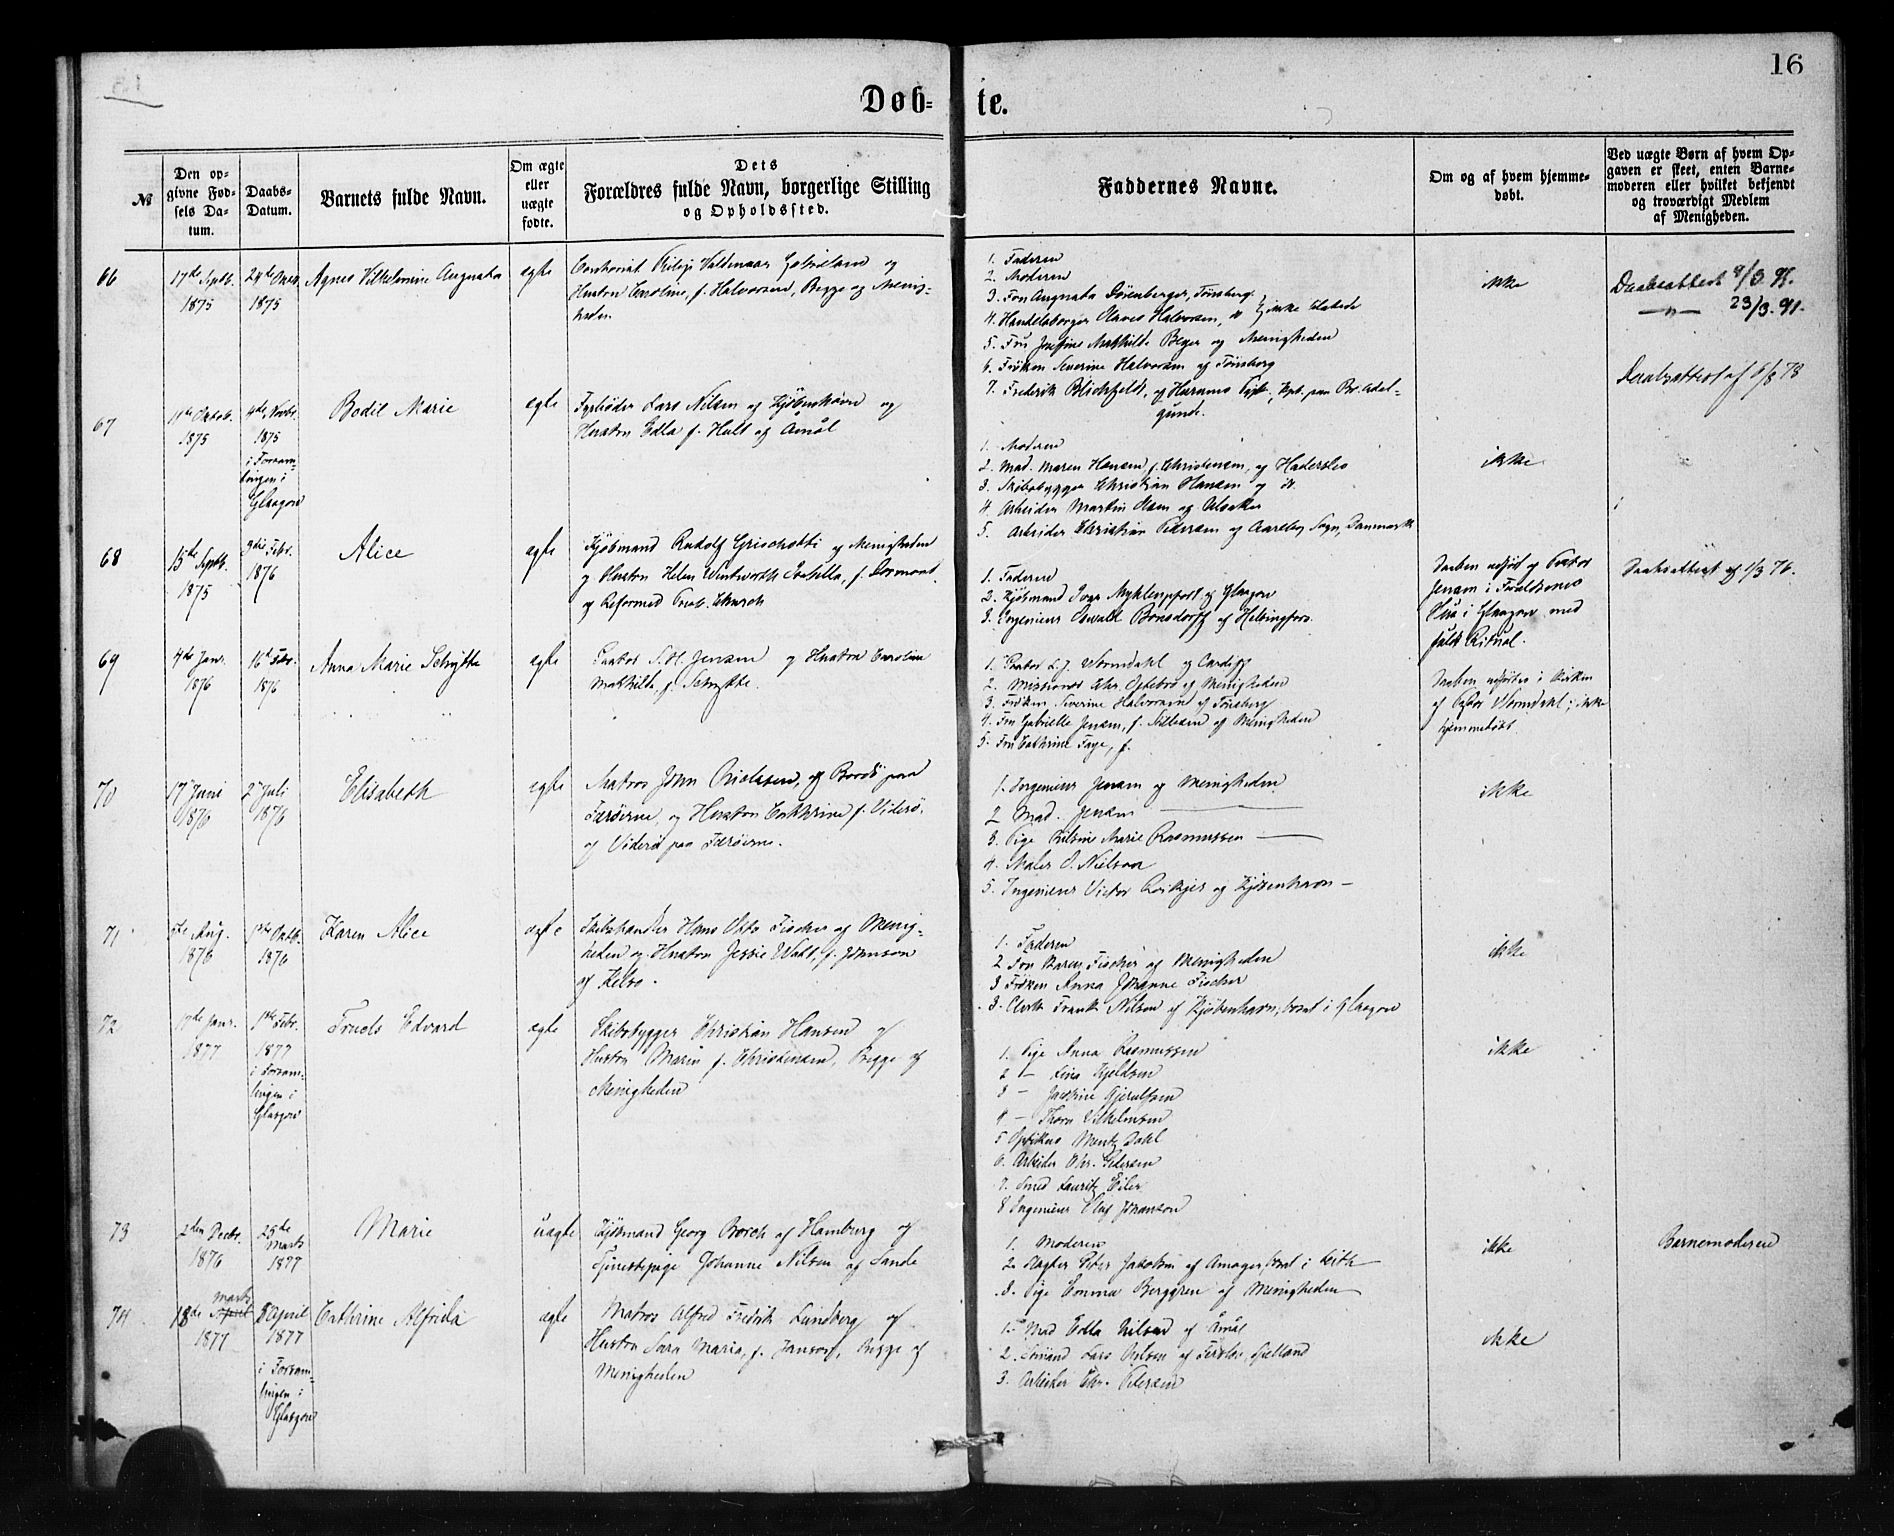 16
Døb-te.
№
Den op-
givne Fød-
sels Da-
tum.
Daabs-
Datum.
Barnets fulde Navn.
Om ægte
eller
uægte
fødte.
Dets
Forældres fulde Navn, borgerlige Stilling
og Opholdssted.
Faddernes Navne.
Om og af hvem hjemme-
døbt.
Ved uægte Børn af hvem Op-
gaven er skeet, enten Barne-
moderen eller hvilket bekjendt
og troværdigt Medlem
af Menigheden.
66
17de Septb.
1875
24de
1875
Agnes Vilhelmine Augusta
ægte
Valdemar
Hustru Caroline, f. Halvorsen, Begge af Menig-
heden.
1. Faderen
2. Moderen
3. Fru Augusta Tönsberg
4. Handelsborger Halvorsen,
5. Fru Josefine Mathilde Beyer af Menigheden
6. Frøken Severine Halvorsen af Tönsberg
7. Frederik Blichfeldt,
gunde.
ikke
Daabsattest
23/3. 91.
Daabsattest af
67
Oktob.
1875
Novbr.
1875
i Forsam-
lingen i
Glasgow
Bodil Marie
ægte
Fyrbøder Lars Nilsen af Kjøbenhavn og
Hustru Edla f. Hult af Åmål
1. Moderen
2. Mad. Maren Hansen, f. Christensen, af Haderslev
3. Skibsbygger Christian Hansen af
4. Arbeider Martin Olsen af
5. Arbeider Christian Pedersen af Sogn, Danmark
ikke
68
15de Septb.
1875
9de Febr.
1876
Alice
ægte
Kjøbmand Rudolf af Menigheden
og Hustru Helen Wentworth Isabella, f. Dormond
af Reformed Presb. Church
1. Faderen
2. Kjøbmand Ivar af Glasgow
3. Ingeniør Oswald Bonsdorff af Helsingfors.
Daaben udført af Pastor
Jensen i Forældrenes
Hus i Glasgow med
fuldt Ritual.
Daabsattest af 1/3 76.
69
4de Janr.
1876
16de Febr.
1876
Anna Marie Schytte
ægte
Pastor S. H. Jensen og Hustru Caroline
Mathilde, f. Schytte.
1. Pastor L. J. Wormdahl af Cardiff
2. Missionær Chr. af Menigheden
3. Frøken Severine Halvorsen af Tönsberg
4. Fru Gabrielle Jensen, f. af Menigheden
5. Fru Cathrine Faye, f.
Daaben udførtes i Kirken
af Pastor Wormdahl; ikke
hjemmedøbt.
70
17 Juni
1876
2 Juli
1876
Elisabeth
ægte
Matros John af Bordö paa
Færöerne, og Hustru Cathrine f. Viderö.
af Viderö paa Færöerne.
1. Ingeniør Jensen af Menigheden
2 Mad. Jensen —
3. Pige Marie Rasmussen —
4. Maler O. Nielsen
5. Ingeniør Victor af Kjøbenhavn —
ikke
71
Aug.
1876
1ste Oktb.
1876
Karen Alice
ægte
Skibshandler Hans Otto Fischer af Menig-
heden og Hustru Jessie Watt, f. Johnson
af Kelso.
1. Faderen
2 Fru Karen Fischer af Menigheden
3 Frøken Anna Johanne Fischer
3. Clerk Frank Nilsen af Kjøbenhavn, boat i Glasgow
ikke
72
17de Janr.
1877
1ste Febr.
1877
i Forsam-
lingen i
Glasgow
Truels Edvard
ægte
Skibsbygger Christian Hansen og
Hustru Maren f. Christensen, Begge af
Menigheden
1. Pige Anna Rasmussen
2 — Lina Kjeldsen
3 — Gjerulfsen
4 — Thora Vilhelmsen
5 Optikus Mentz Dahl
6. Arbeider Chr. Pedersen
7. Smed Lauritz Eiler
8 Ingeniør Oluf Johansen
ikke
73
2den Decbr.
1876
25de
Marts
1877
Marie
uægte
Kjøbmand Georg Borch af Hamburg og
Tjenestepige Johanne Nilsen af Sande
1. Moderen
2. Peter Jakobsen af Amager, boat i Leith
3. Pige Emma Berggren af Menigheden
ikke
Barnemoderen
74
Marts
18de April
1877
8 April
1877
i Forsam-
lingen i
Glasgow
Cathrine Alfrida
ægte
Matros Alfred Fredrik Lundberg og
Hustru Sara Maria, f. Janson, Begge af
Menigheden
1. Mad Edla Nilsen af Åmål
2. Lars Nilsen af Sjelland
3. Arbeider Chr. Pedersen
ikke